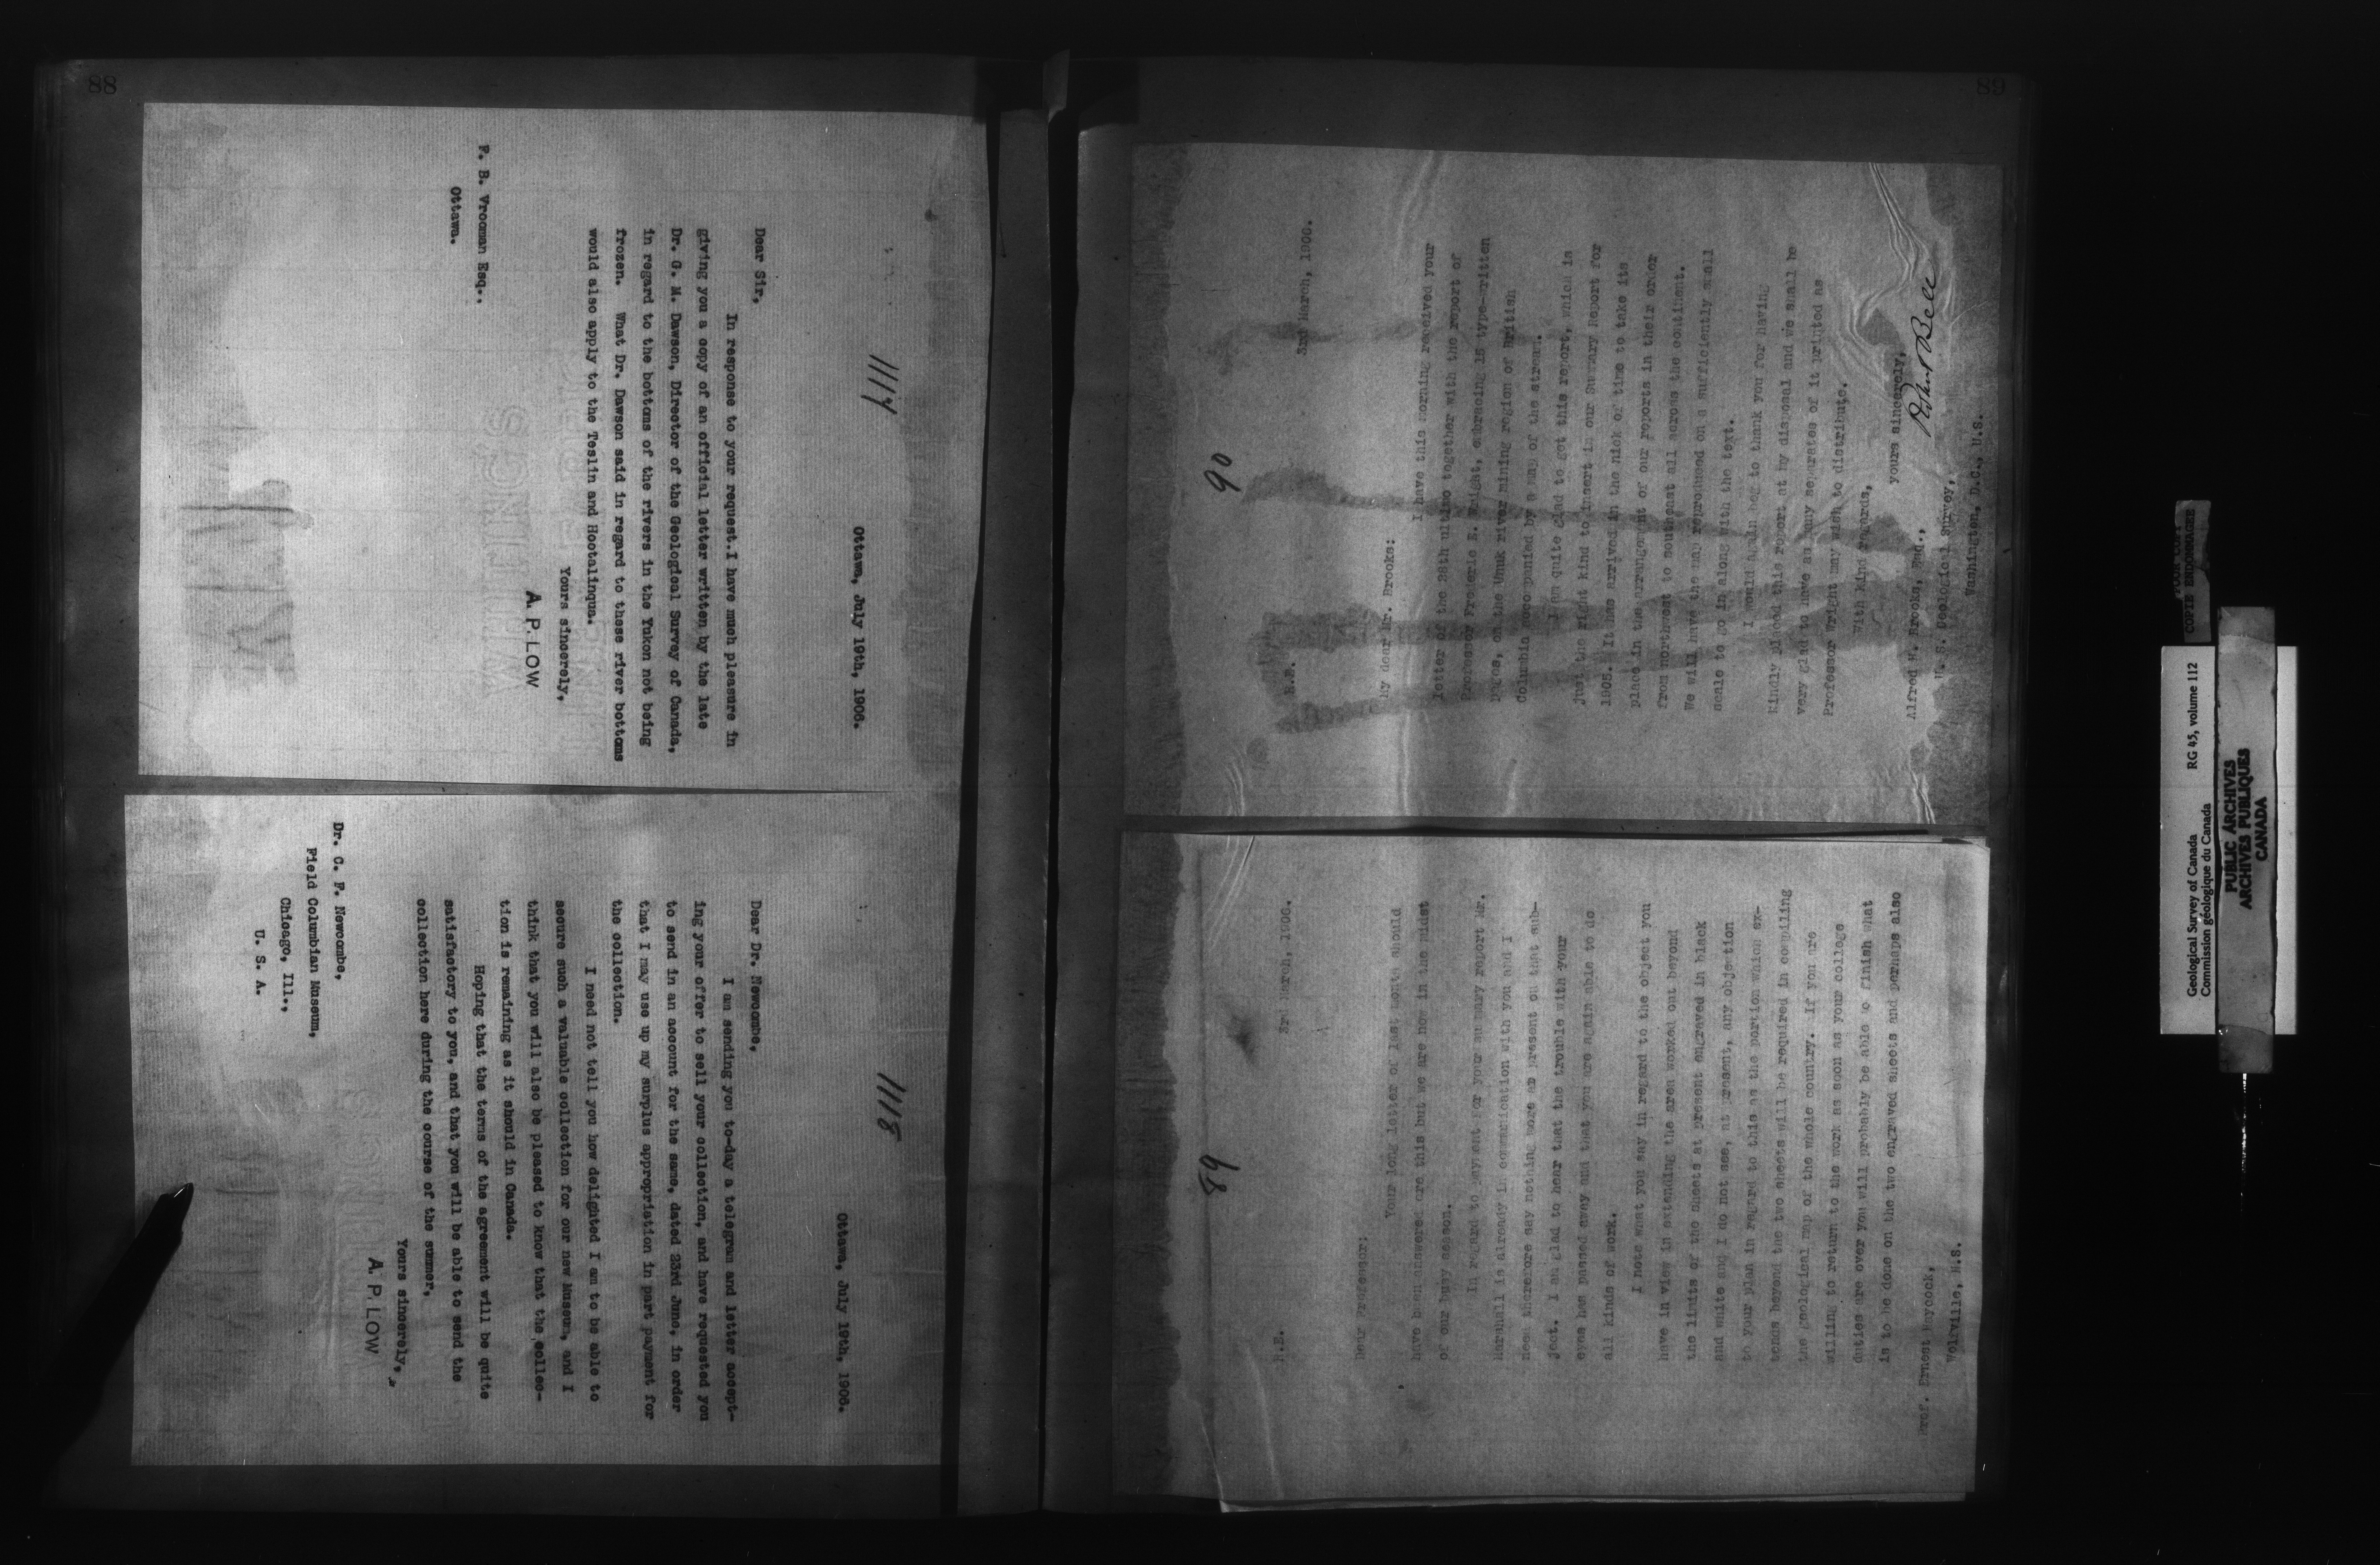 88
1117
Ottawa, July 19th, 1906.
Dear Sir,
In response to your request.I have much pleasure in
giving you a copy of an official letter written by the late
Dr. G. M. Dawson, Director of the Geological Survey of Canada,
in regard to the bottoms of the rivers in the Yukon not being
frozen. What Dr. Dawson said in regard to these river bottoms
would also apply to the Teslin and Hootalinqua.
Yours sincerely,
A. P. LOW
F. B. Vrooman Esq.,
Ottawa.
1118
Ottawa, July 19th, 1906.
Dear Dr. Newcombe,
I am sending you to-day a telegram and letter accept-
ing your offer to sell your collection, and have requested you
to send in an account for the same, dated 23rd June, in order
that I may use up my surplus appropriation in part payment for
the collection.
I need not tell you how delighted I am to be able to
secure such a valuable collection for our new Museum, and I
think that you will also be pleased to know that the collec-
tion is remaining as it should in Canada.
Hoping that the terms of the agreement will be quite
satisfactory to you, and that you will be able to send the
collection here during the course of the summer,
Yours sincerely,
A. P. LOW
Dr. C. F. Newcombe,
Field Columbian Museum,
Chicago, Ill.,
U. S. A.
89
89
3rd March, 1906.
Dear Professor:
Your long letter of last month should
have been answered ere this but we are now in the midst
of our busy season.
In regard to payment for your summary report Mr.
Marshall is already in communication with you and I
need therefore say nothing more at present on that sub-
ject. I am glad to hear that the trouble with your
eyes has passed away and that you are again able to do
all kinds of work.
I note what you say in regard to the object you
have in view in extending the area worked out beyond
the limits of the sheets at present engraved in black
and white and I do not see, at present, any objection
to your plan in regard to this as the portion which ex-
tends beyond the two sheets will be required in compiling
the geological map of the whole country. If you are
willing to return to the work as soon as your college
duties are over you will probably be able to finish what
is to be done on the two engraved sheets and perhaps also
Prof. Ernest Haycock,
Wolfville, N.S.
90
3rd March, 1906.
R.B.
My dear Mr. Brooks:
I have this morning received your
letter of the 28th ultimo together with the report of
Professor Frederic E. Wright, embracing 15 type-written
pages, on the Unuk river mining region of British
Columbia accompanied by a map of the stream.
I am quite glad to get this report, which is
just the right kind to insert in our Summary Report for
1905. It has arrived in the nick of time to take its
place in the arrangement of our reports in their order
from northwest to southeast all across the continent.
We will have the map reproduced on a sufficiently small
scale to go in along with the text.
I would again beg to thank you for having
kindly placed this report at my disposal and we shall be
very glad to have as many separates of it printed as
Professor Wright may wish to distribute.
With kind regards,
yours sincerely,
Robert Bell
Alfred H. Brooks, Esq.,
U. S. Geological Survey,
Washington, D.C., U.S.
COPIE ENDOMMAGEE
Geological Survey of Canada RG 45, volume 112
Commission géologique du Canada
PUBLIC ARCHIVES
ARCHIVES PUBLIQUES
CANADA